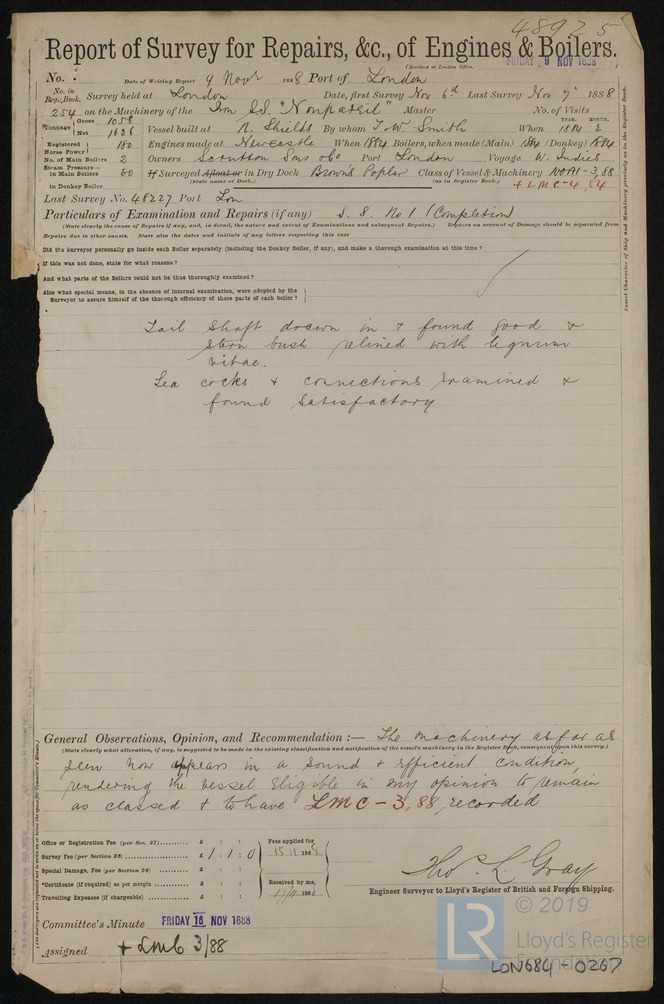 48925
Report of Survey for Repairs, &c., of Engines & Boilers.
(Received at London Office,
FRIDAY 9 NOV 1888
No. Date of Writing Report 9 Novr 1888 Port of London
No. in Reg. Book. Survey held at London Date, first Survey Nov 6th Last Survey Nov 7th 1888
254 on the Machinery of the Iron S.S. "Nonpareil" Master No. of Visits
Tonnage Gross 1058 Net 1636 Vessel built at N. Shields By whom T & W Smith When YEAR. 1884 MONTH. 2
Registered Horse Power 180 Engines made at Newcastle When 1884 Boilers, when made (Main) 1884 (Donkey) 1884
No. of Main Boilers 2 Owners Scrutton Sons & Co Port London Voyage W. Indies
Steam Pressure— in Main Boilers 80 If Surveyed Afloat or in Dry Dock Brown's Poplar Class of Vessel & Machinery 100A1-3,88
(State name of Dock.) (as in Register Book.)
in Donkey Boiler + LMC-4,84
Last Survey No. 48227 Port Lon
Particulars of Examination and Repairs (if any) S. S. No 1 (Completion)
(State clearly the cause of Repairs if any, and, in detail, the nature and extent of Examinations and subsequent Repairs.) Repairs on account of Damage should be separated from
Repairs due to other causes. State also the dates and initials of any letters respecting this case
Did the Surveyor personally go inside each Boiler separately (including the Donkey Boiler, if any), and make a thorough examination at this time?
If this was not done, state for what reasons?
And what parts of the Boilers could not be thus thoroughly examined?
Also what special means, in the absence of internal examination, were adopted by the
Surveyor to assure himself of the thorough efficiency of those parts of each boiler?
Tail Shaft drawn in & found good &
stern bush relined with lignum
vitae.
Sea cocks & connections examined &
found satisfactory
Insert Character of Ship and Machinery precisely as in the Register Book.
General Observations, Opinion, and Recommendation :— The machinery as far as
(State clearly what alteration, if any, is suggested to be made in the existing classification and notification of the vessel's machinery in the Register Book, consequent upon this survey.)
seen now appears in a sound & efficient condition,
rendering the vessel eligible in my opinion to remain
as classed & to have LMC-3,88 recorded
Office or Registration Fee (per Sec. 27) £ : :
Survey Fee (per Section 28) £ 1 : 1 : 0
Special Damage Fee (per Section 28) £ : :
*Certificate (if required) as per margin £ : :
Travelling Expenses (if chargeable) £ : :
Fees applied for
15 11 1888
Received by me,
Thos L Gray
Engineer Surveyor to Lloyd's Register of British and Foreign Shipping.
Committee's Minute FRIDAY 16 NOV 1888
Assigned + LMC 3/88
LR
© 2019
Lloyd's Register
Foundation
LON684-0267